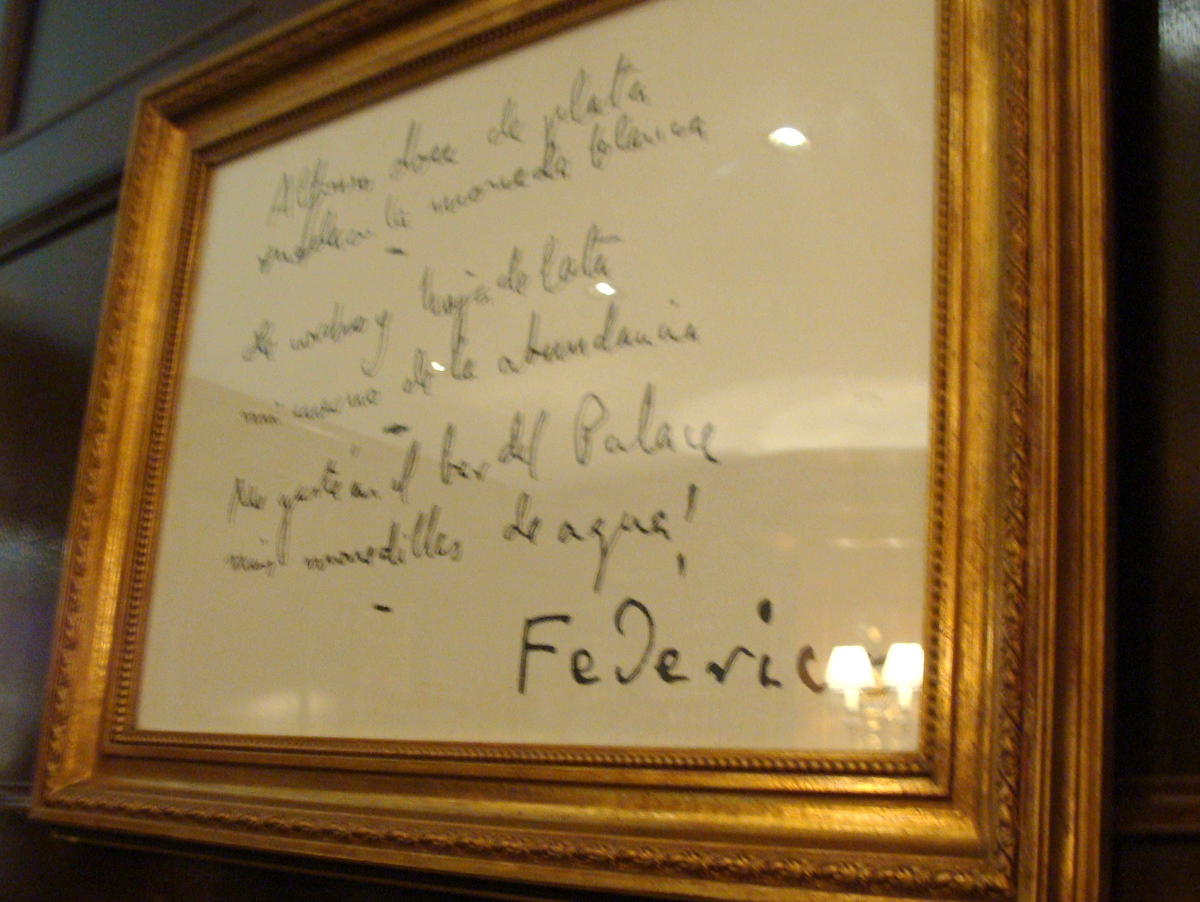 Alfonso doce de plata
rueda en la moneda blanca
De cobre y hoja de lata
mi cuerno de la abundancia
Me gasté en el bar del Palace
mis monedillas de agua!
Federico